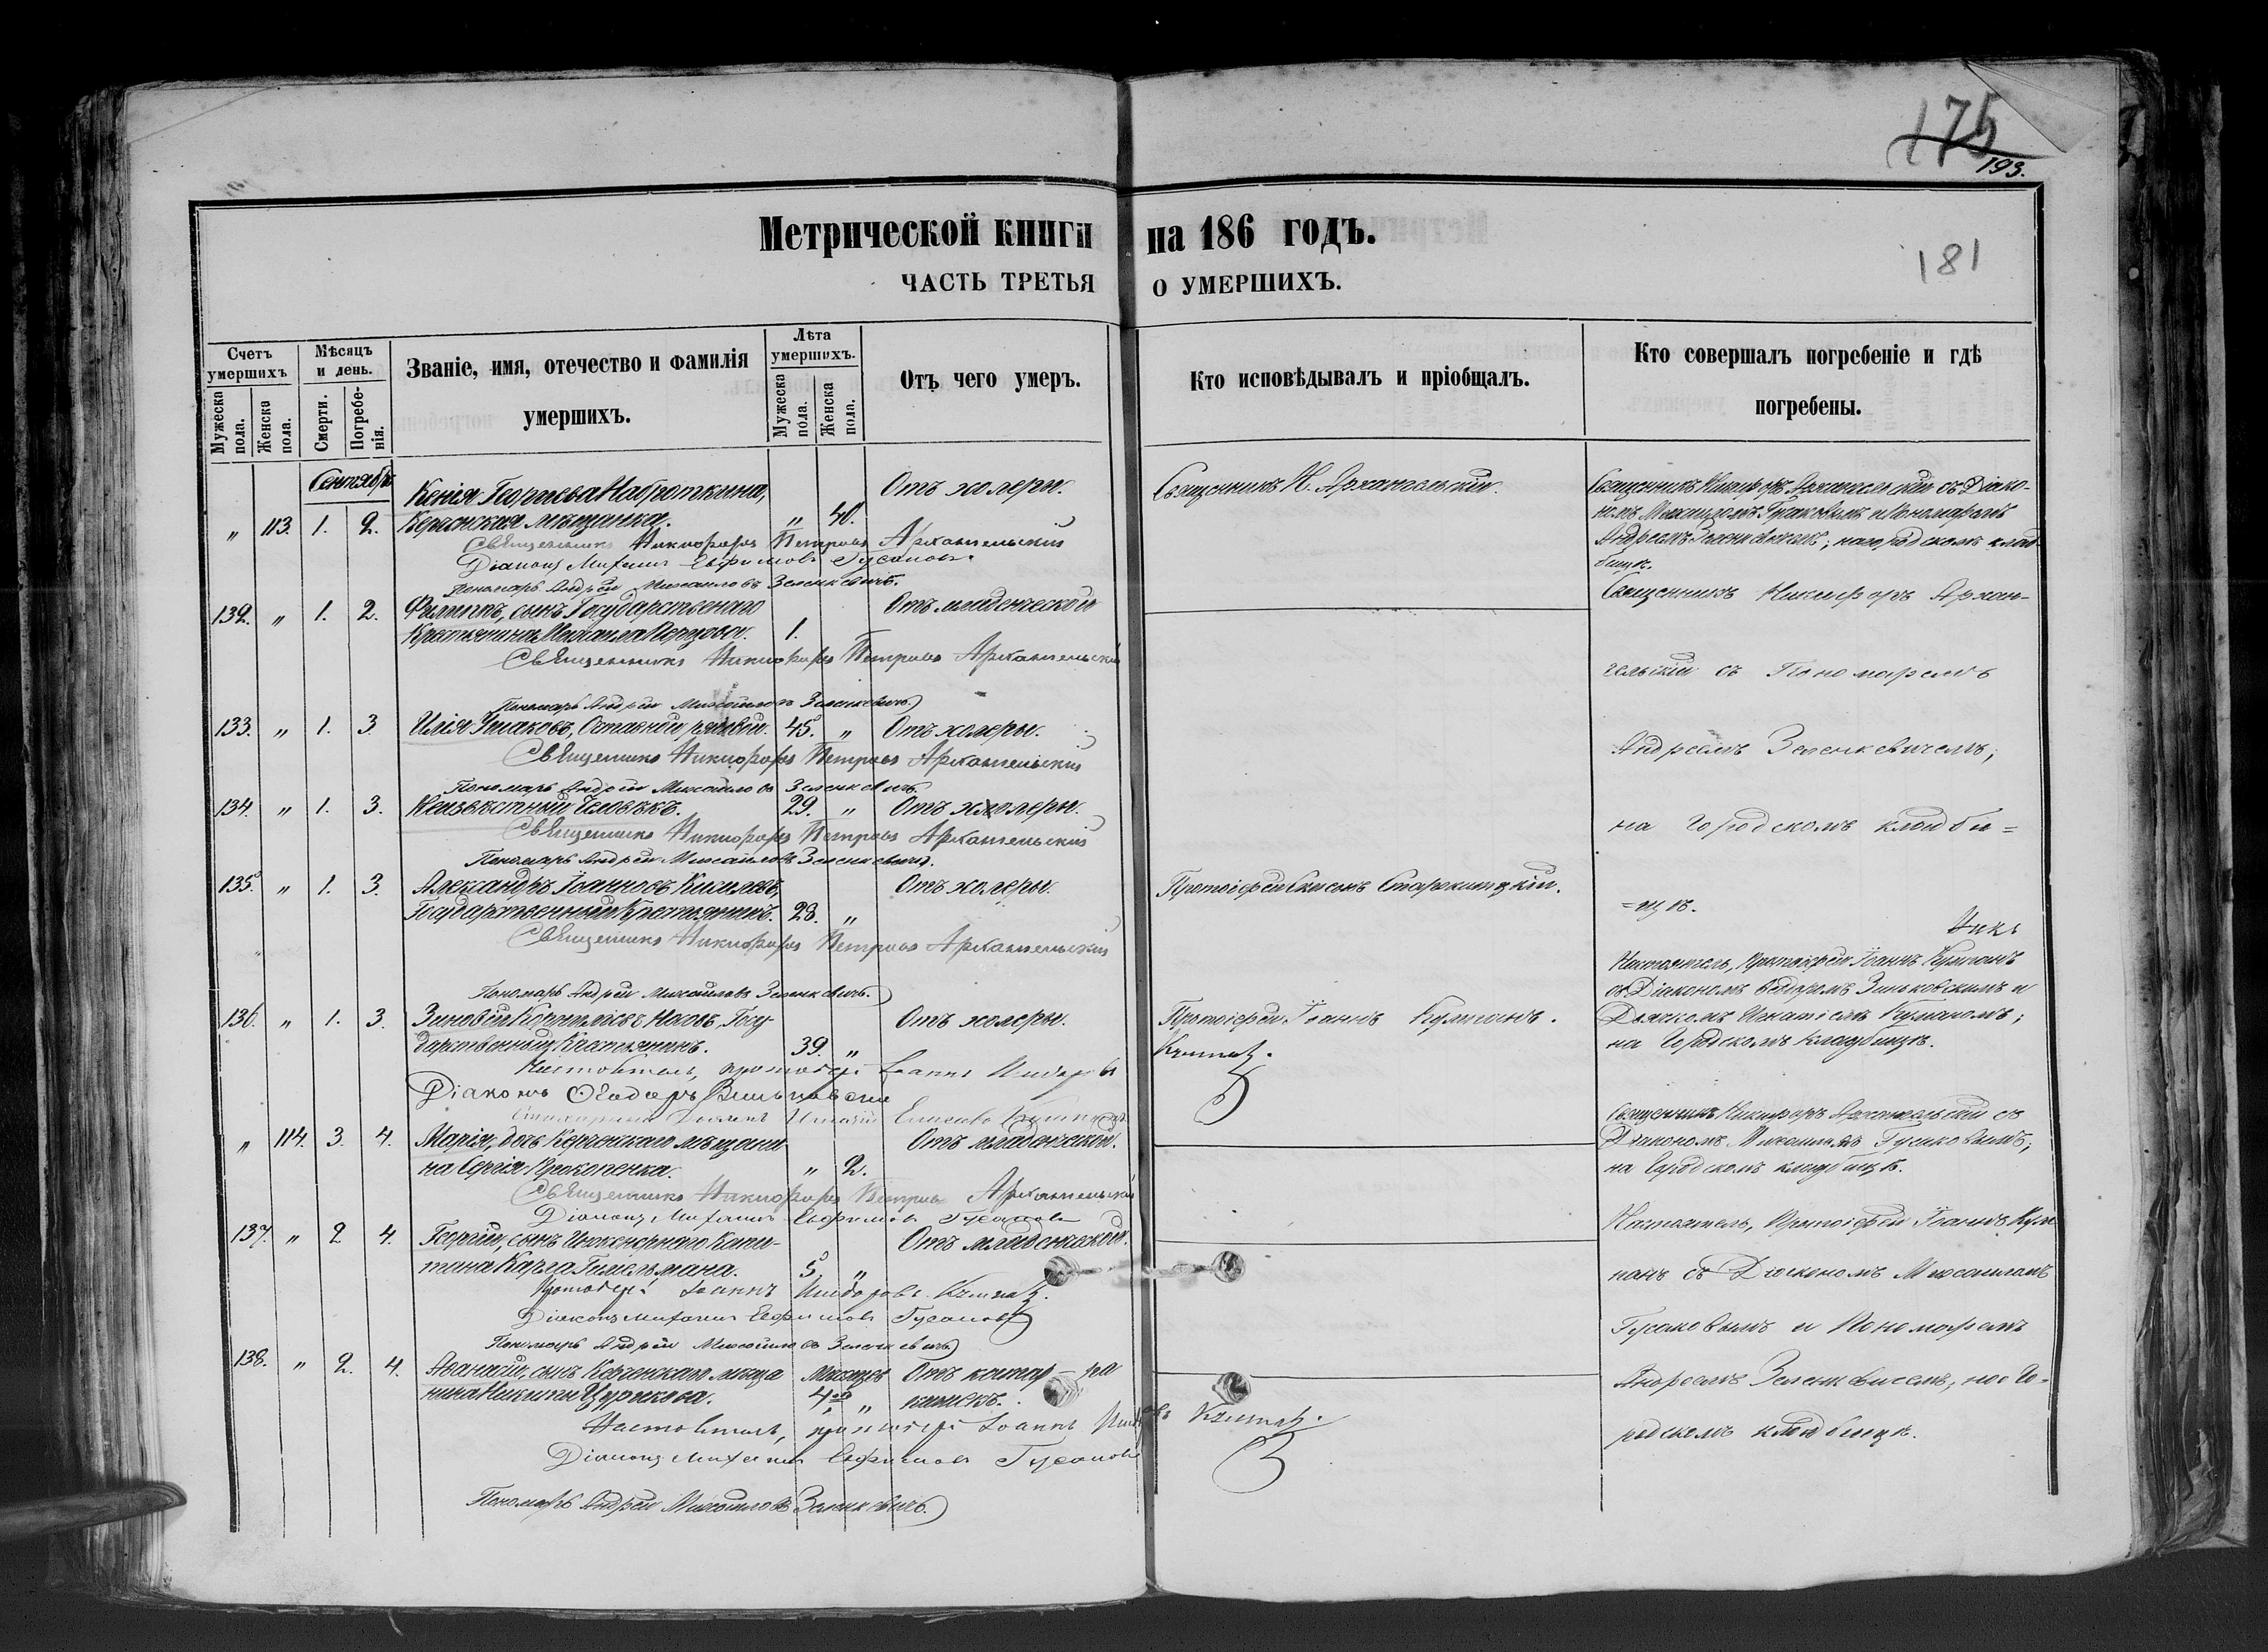 175
193.
181
Метрической книги на 186 годъ.
ЧАСТЬ ТРЕТЬЯ О УМЕРШИХЪ.
Счетъ умершихъ
Мужеска пола.
Женска пола.
Мѣсяцъ и день.
Смерти.
Погребенія.
Званіе, имя, отечество и фамилія
умершихъ.
Лѣта умершихъ.
Мужеска пола.
Женска пола.
Отъ чего умеръ.
Кто исповѣдывалъ и пріобщалъ.
Кто совершалъ погребеніе и гдѣ
погребены.
Сентябрь
Ксенія Георгіева Отъ холеры. Священникъ Н. Архангельскій.
„ 113. 1. 2. Керченская мѣщанка. „ 40.
Священникъ Никифоръ Петровъ Архангельскій
Діаконъ Михаилъ Евфимовъ Гусаковъ
Пономарь Андрей Михайловъ Зеленкевичъ.
Священникъ Никифоръ Архангельскій съ Діако-
номъ Михаиломъ Гусаковымъ и Пономаремъ
Андреемъ Зеленкевичемъ; на городскомъ клад-
бищѣ.
132. „ 1. 2. Филиппъ, сынъ Государственнаго Отъ младенческой
Крестьянина Михаила 1.
Священникъ Никифоръ Петровъ Архангельскій
Пономарь Андрей Михайловъ Зеленкевичъ
133. „ 1. 3. Илія Ушаковъ, Отставной рядовой. 45. „ Отъ холеры.
Священникъ Никифоръ Петровъ Архангельскій
Пономарь Андрей Михайловъ Зеленкевичъ.
134. „ 1. 3. Неизвѣстный Человѣкъ. 29. „ Отъ холеры.
Священникъ Никифоръ Петровъ Архангельскій
Пономарь Андрей Михайловъ Зеленкевичъ.
135. „ 1. 3. Александръ Іоанновъ Киселевъ, Отъ холеры. Протоіерей
Государственный Крестьянинъ. 28. „
Священникъ Никифоръ Петровъ Архангельскій
Пономарь Андрей Михайловъ Зеленкевичъ.
Священникъ Никифоръ Архан-
гельскій съ Пономаремъ
Андреемъ Зеленкевичемъ;
на Городскомъ кладби=
=щѣ.
136. „ 1. 3. Зиновій Носовъ, Госу- Отъ холеры. Протоіерей Іоаннъ Кумпанъ.
дарственный Крестьянинъ. 39. „
Настоятель, протоіерей Іоаннъ
Діаконъ Ѳеодоръ Зиньковскій
Настоятель, Протоіерей Іоаннъ Кумпанъ
съ Діакономъ Ѳедоромъ Зиньковскимъ и
Дьячкомъ Игнатіемъ
на Городскомъ кладбищѣ.
„ 114. 3. 4. Марія, дочь Керченскаго мѣщани- Отъ младенческой.
на Сергія Прокопенка. „ 2.
Священникъ Никифоръ Петровъ Архангельскій
Діаконъ Михаилъ Евфимовъ Гусаковъ
Священникъ Никифоръ Архангельскій съ
Діакономъ Михаиломъ Гусаковымъ;
на Городскомъ кладбищѣ.
137. „ 2 4. Георгій, сынъ Инженернаго Капи- Отъ младенческой.
тана Карла 5 „
Протоіерей Іоаннъ
Діаконъ Михаилъ Евфимовъ Гусаковъ
Пономарь Андрей Михайловъ Зеленкевичъ
138. „ 2. 4. Аѳанасій, сынъ Керченскаго мѣща- Мѣсяцевъ Отъ катарра
нина Никиты Цурикова. 4хъ „ кишекъ.
Настоятель, протоіерей Іоаннъ
Діаконъ Михаилъ Евфимовъ Гусаковъ
Пономарь Андрей Михайловъ Зеленкевичъ.
Настоятель, Протоіерей Іоаннъ Кум-
панъ съ Діакономъ Михаиломъ
Гусаковымъ и Пономаремъ
Андреемъ Зеленкевичемъ; на Го-
родскомъ кладбищѣ.